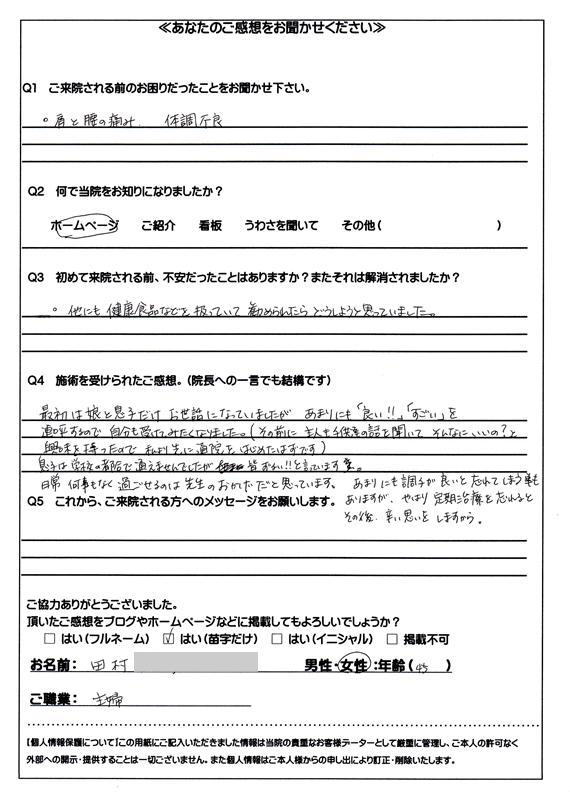 ≪あなたのご感想をお聞かせください≫
Q1 ご来院される前のお困りだったことをお聞かせ下さい。
。肩と腰の痛み 体調不良
Q2 何で当院をお知りになりましたか？
ホームページ ご紹介 看板 うわさを聞いて その他( )
Q3 初めて来院される前、不安だったことはありますか？またそれは解消されましたか？
。他にも健康食品などを扱っていて勧められたらどうしようと思っていました。
Q4 施術を受けられたご感想。（院長への一言でも結構です）
最初は娘と息子だけお世話になっていましたが あまりにも「良い!!」「すごい」を
連呼するので自分も受けてみたくなりました。(その前に主人も子供達の話を聞いて そんなにいいの？と
興味を持ったので 私より先に通院をはじめたはずです)
息子は学校の都合で通えませんでしたが 皆ずわい!!と言っています
日常 何事もなく過ごせるのは先生のおかげだと思っています。 あまりにも調子が良いと忘れてしまう事も
Q5 これから、ご来院される方へのメッセージをお願いします。 ありますが、やはり定期治療を忘れると
その後、辛い思いをしますから。
ご協力ありがとうございました。
頂いたご感想をブログやホームページなどに掲載してもよろしいでしょうか？
□ はい（フルネーム） ☑ はい（苗字だけ） □ はい（イニシャル） □ 掲載不可
お名前： 田村 男性・女性：年齢（45）
ご職業： 主婦
【個人情報保護について】この用紙にご記入いただきました情報は当院の貴重なお客様データーとして厳重に管理し、ご本人の許可なく
外部への開示・提供することは一切ございません。また個人情報はご本人様からの申し出により訂正・削除いたします。